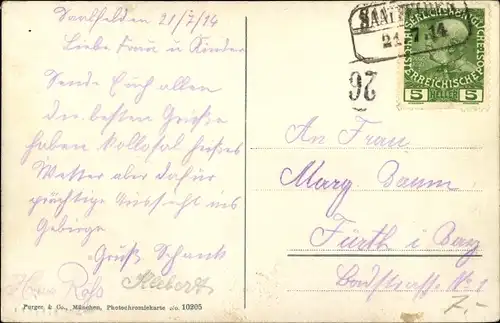 Saalfelden 21/7/14
Liebe Frau u Kinder
Sende Euch allen
die besten Grüße
haben kollosal heißes
Wetter aber dafür
prächtige Aussicht ins
Gebirge
Gruß Schank
Hans
Purger & Co., München, Photochromiekarte No. 10205
SAALFELDEN
21.7.14
26
KAISERLICHE KÖNIGLICHE POST
ÖSTERREICHISCHE
5 HELLER 5
An Frau
Marg. Baum
Fürth i Bay
Badstrasse No 1
7.-